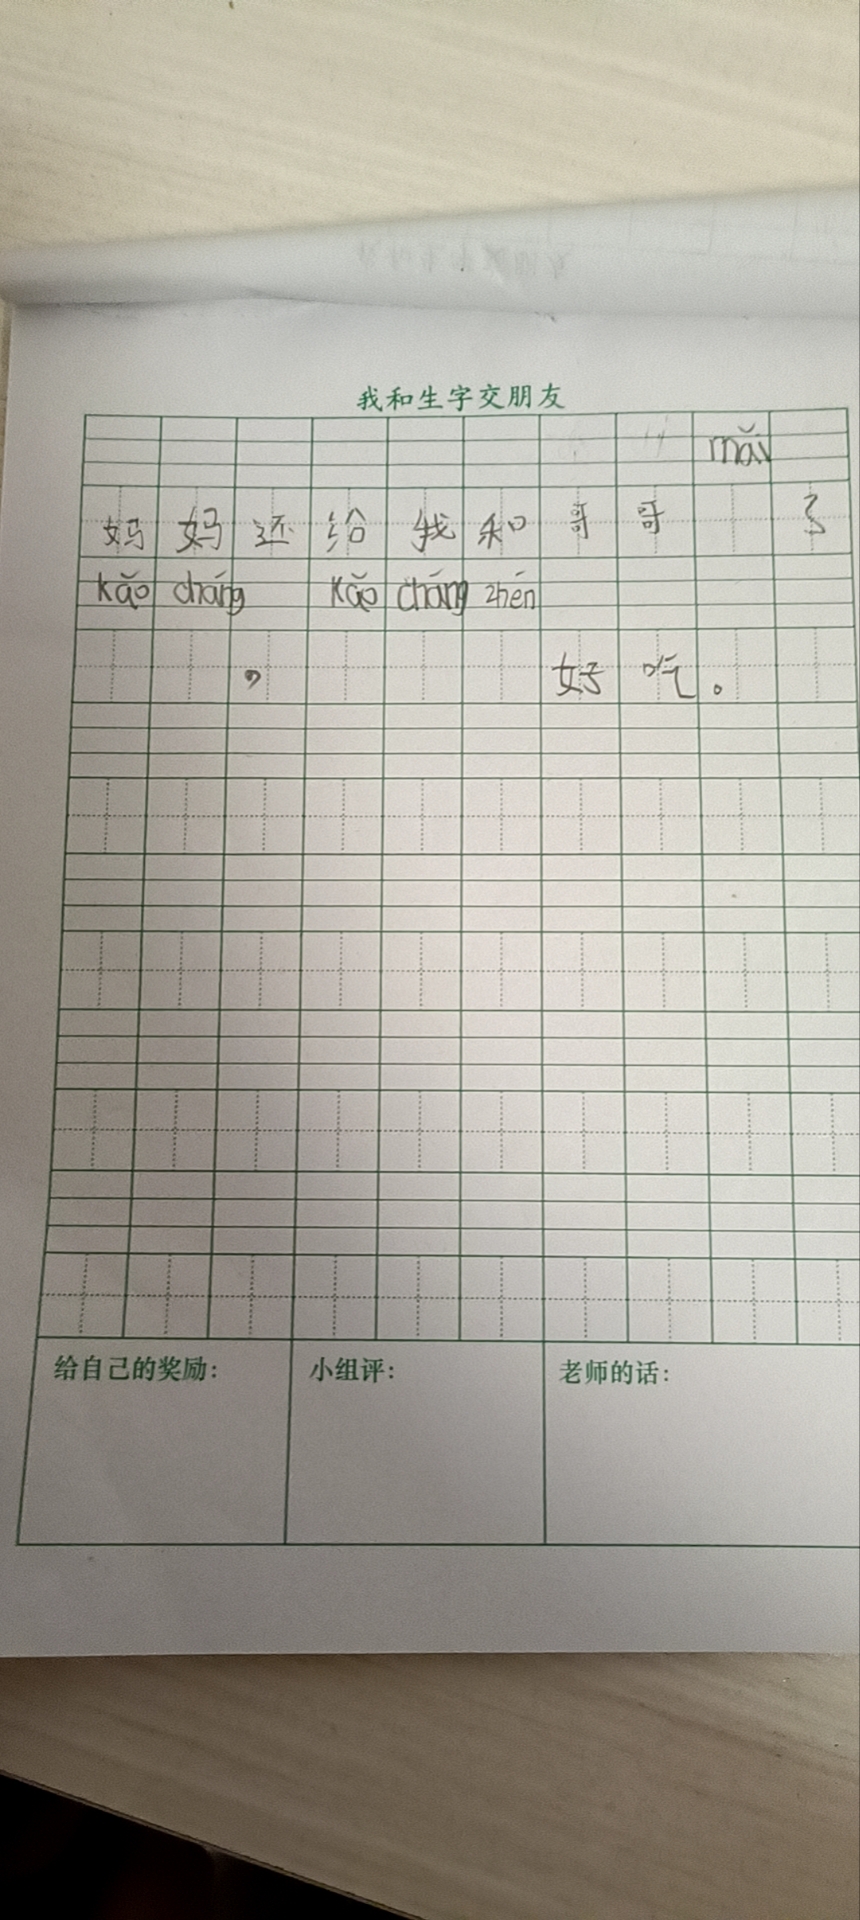 我和生字交朋友
mǎi
妈妈还给我和哥哥 了
kǎo cháng kǎo cháng zhēn
， 好吃。
给自己的奖励：
小组评：
老师的话：